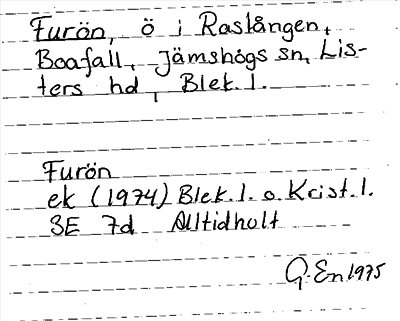 Furön, ö i Raslången,
Boafall, Jämshögs sn, Lis-
ters hd, Blek. l.
Furön
ek (1974) Blek. l. o. Krist. l.
3E 7d Alltidhult
G. En 1975